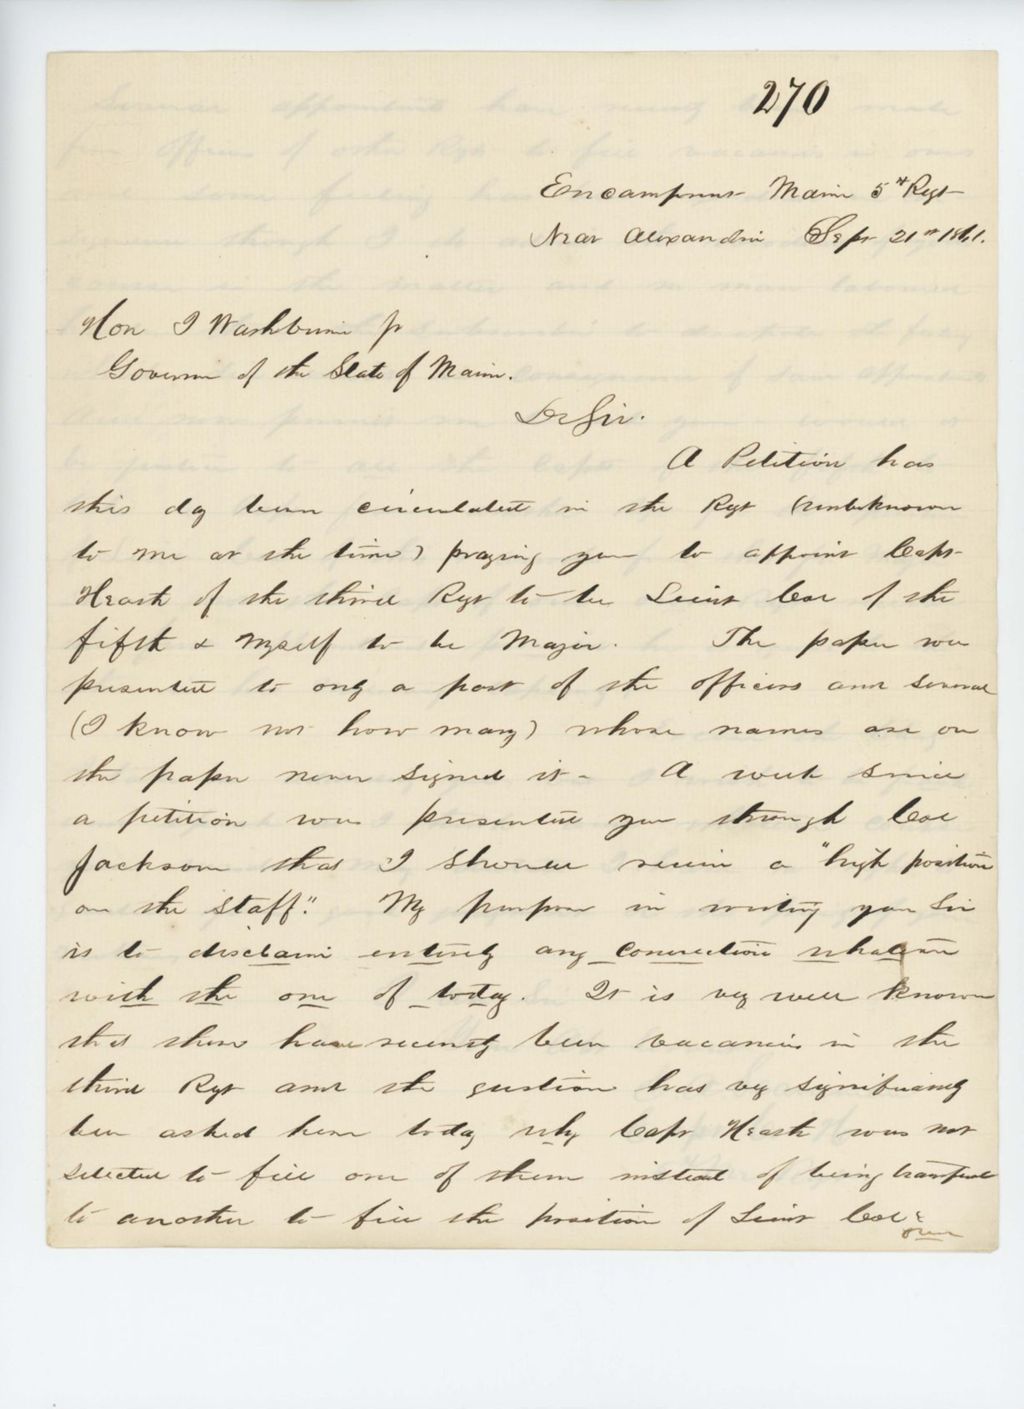 270
Encampment Maine 5th Regt
Near Alexandria Sept 21st 1861.
Hon I Washburn jr
Governor of the State of Maine.
Dr Sir.
A Petition has
this day been circulated in the Regt (unbeknown
to me at the time) praying you to appoint Capt
Heath of the third Regt to be Lieut Col of the
fifth & myself to be Major. The paper was
presented to only a part of the officers and several
(I know not how many) whose names are on
the paper never signed it - A week since
a petition was presented you through Col
Jackson that I should receive a "high position
on the staff." My purpose in writing you Sir
is to disclaim entirely any connection whatever
with the one of today. It is very well known
that there have recently been vacancies in the
third Regt and the question has very significantly
been asked here today why Capt Heath was not
selected to fill one of them instead of being transferred
to another to fill the position of Lieut Col?
over